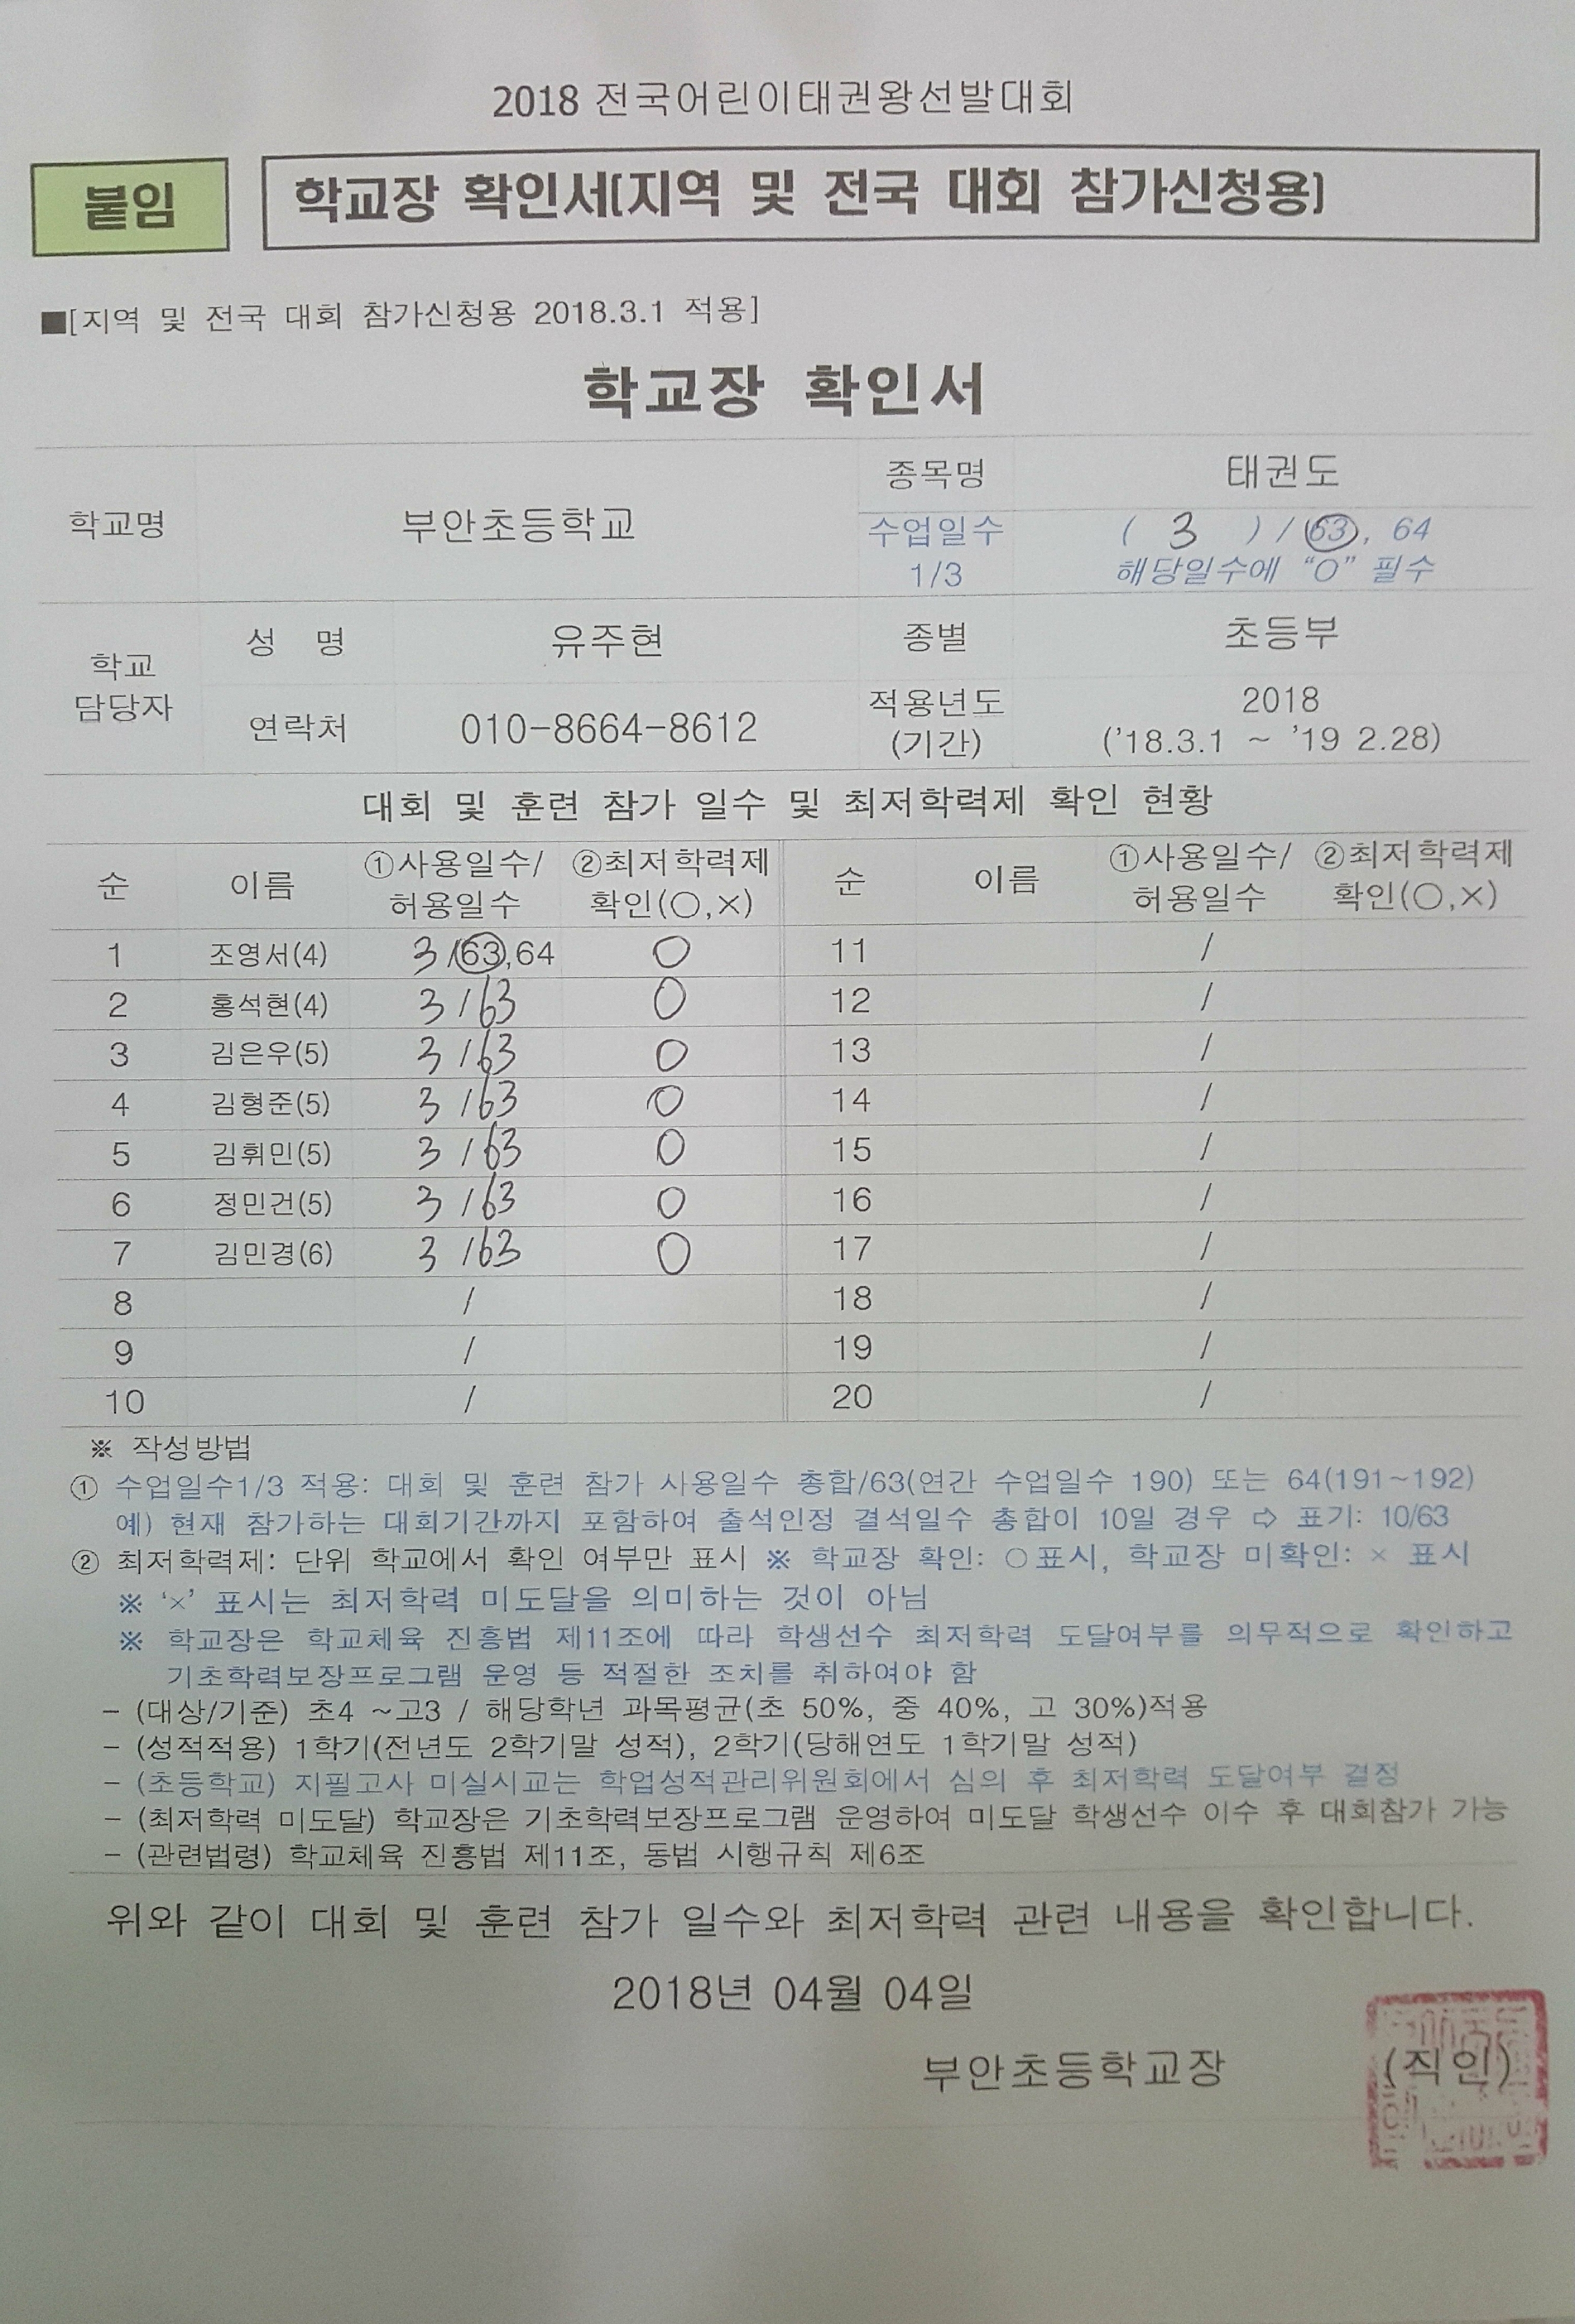 2018 전국어린이태권왕선발대회
붙임
학교장 확인서(지역 및 전국 대회 참가신청용)
■[지역 및 전국 대회 참가신청용 2018.3.1 적용]
학교장 확인서
학교명 부안초등학교 종목명 태권도
수업일수 1/3 ( 3 ) / 63, 64
해당일수에 “O” 필수
학교 담당자 성 명 유주현 종별 초등부
연락처 010-8664-8612 적용년도 (기간) 2018 ('18.3.1 ~ '19 2.28)
대회 및 훈련 참가 일수 및 최저학력제 확인 현황
순 이름 ①사용일수/허용일수 ②최저학력제 확인(○,×) 순 이름 ①사용일수/허용일수 ②최저학력제 확인(○,×)
1 조영서(4) 3 /63,64 ○ 11 /
2 홍석현(4) 3 / 63 ○ 12 /
3 김은우(5) 3 / 63 ○ 13 /
4 김형준(5) 3 / 63 ○ 14 /
5 김휘민(5) 3 / 63 ○ 15 /
6 정민건(5) 3 / 63 ○ 16 /
7 김민경(6) 3 / 63 ○ 17 /
8 / 18 /
9 / 19 /
10 / 20 /
※ 작성방법
① 수업일수1/3 적용: 대회 및 훈련 참가 사용일수 총합/63(연간 수업일수 190) 또는 64(191~192)
예) 현재 참가하는 대회기간까지 포함하여 출석인정 결석일수 총합이 10일 경우 ⇨ 표기: 10/63
② 최저학력제: 단위 학교에서 확인 여부만 표시 ※ 학교장 확인: ○표시, 학교장 미확인: × 표시
※ ‘×’ 표시는 최저학력 미도달을 의미하는 것이 아님
※ 학교장은 학교체육 진흥법 제11조에 따라 학생선수 최저학력 도달여부를 의무적으로 확인하고
기초학력보장프로그램 운영 등 적절한 조치를 취하여야 함
- (대상/기준) 초4 ~고3 / 해당학년 과목평균(초 50%, 중 40%, 고 30%)적용
- (성적적용) 1학기(전년도 2학기말 성적), 2학기(당해연도 1학기말 성적)
- (초등학교) 지필고사 미실시교는 학업성적관리위원회에서 심의 후 최저학력 도달여부 결정
- (최저학력 미도달) 학교장은 기초학력보장프로그램 운영하여 미도달 학생선수 이수 후 대회참가 가능
- (관련법령) 학교체육 진흥법 제11조, 동법 시행규칙 제6조
위와 같이 대회 및 훈련 참가 일수와 최저학력 관련 내용을 확인합니다.
2018년 04월 04일
부안초등학교장 (직인)